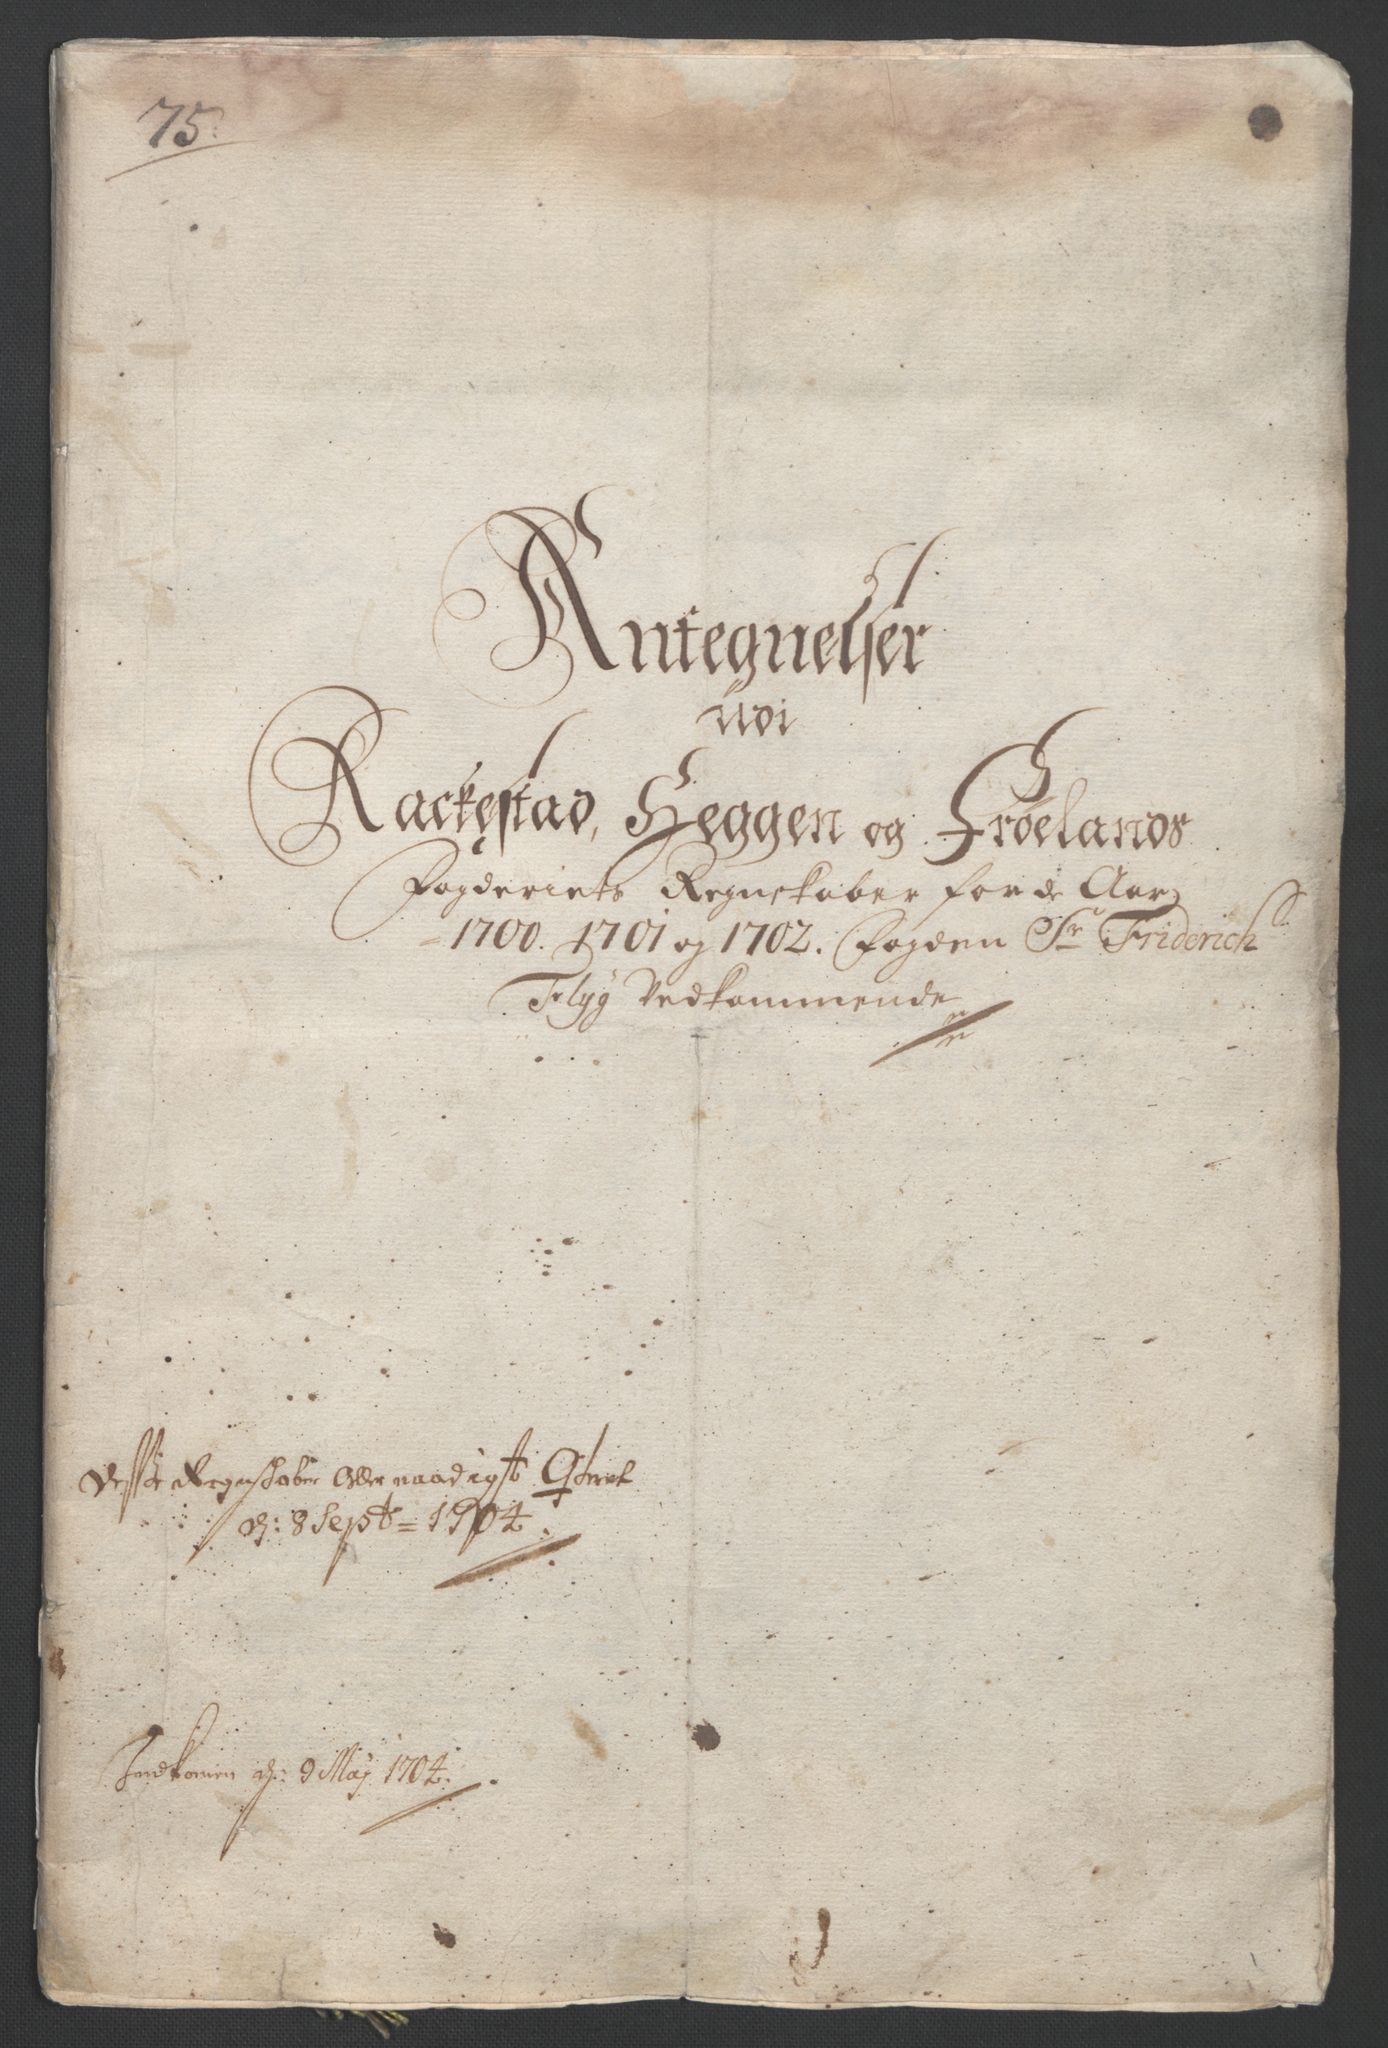 75.
Antegnelser
udi
Rackestad, Heggen og Frøelands
Fogderiets Regnskaber for de Aar
1700. 1701 og 1702. Fogden Sr. Friderich
Flyg Vedkommende
Desse Regnskaber Aller naadigst Qvitert
d: 8 Sept = 1704.
Indkomen d: 9 Maj 1704.